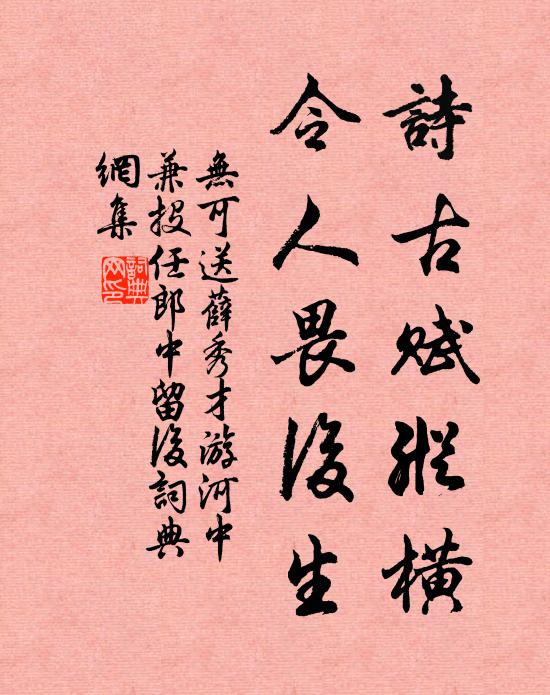 詩古賦縱橫
令人畏後生
無可送薛秀才游河中
兼投任郎中留後詞典
網集
詞典網印